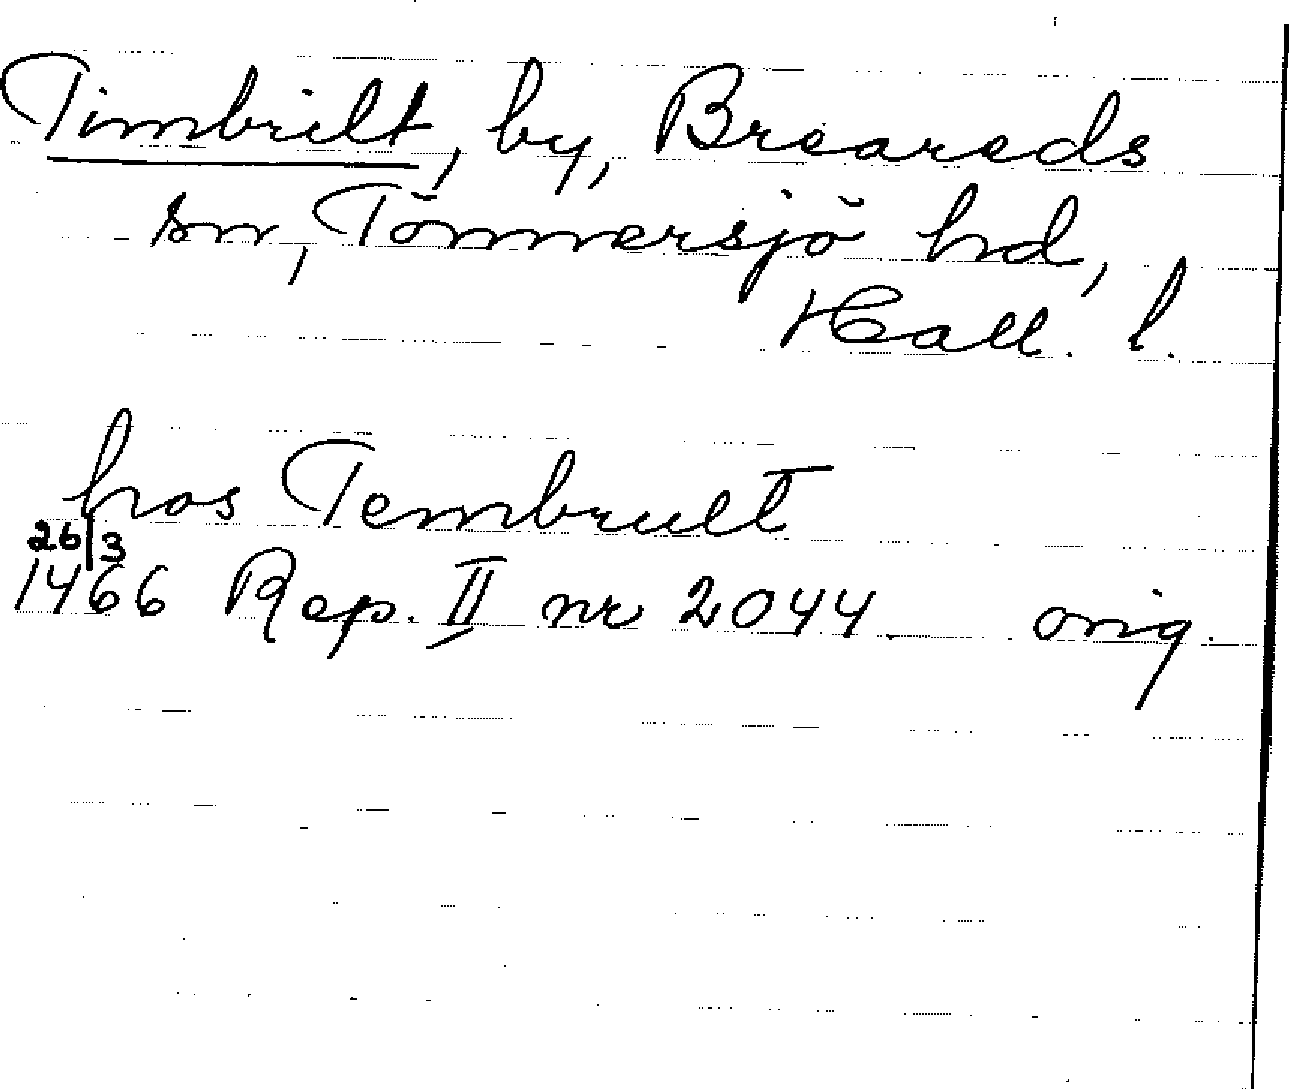 Timbrilt, by, Breareds
sn, Tönnersjö hd,
Hall. l.
hos Tembrult
26/3
1466 Rep. II nr 2044 orig.